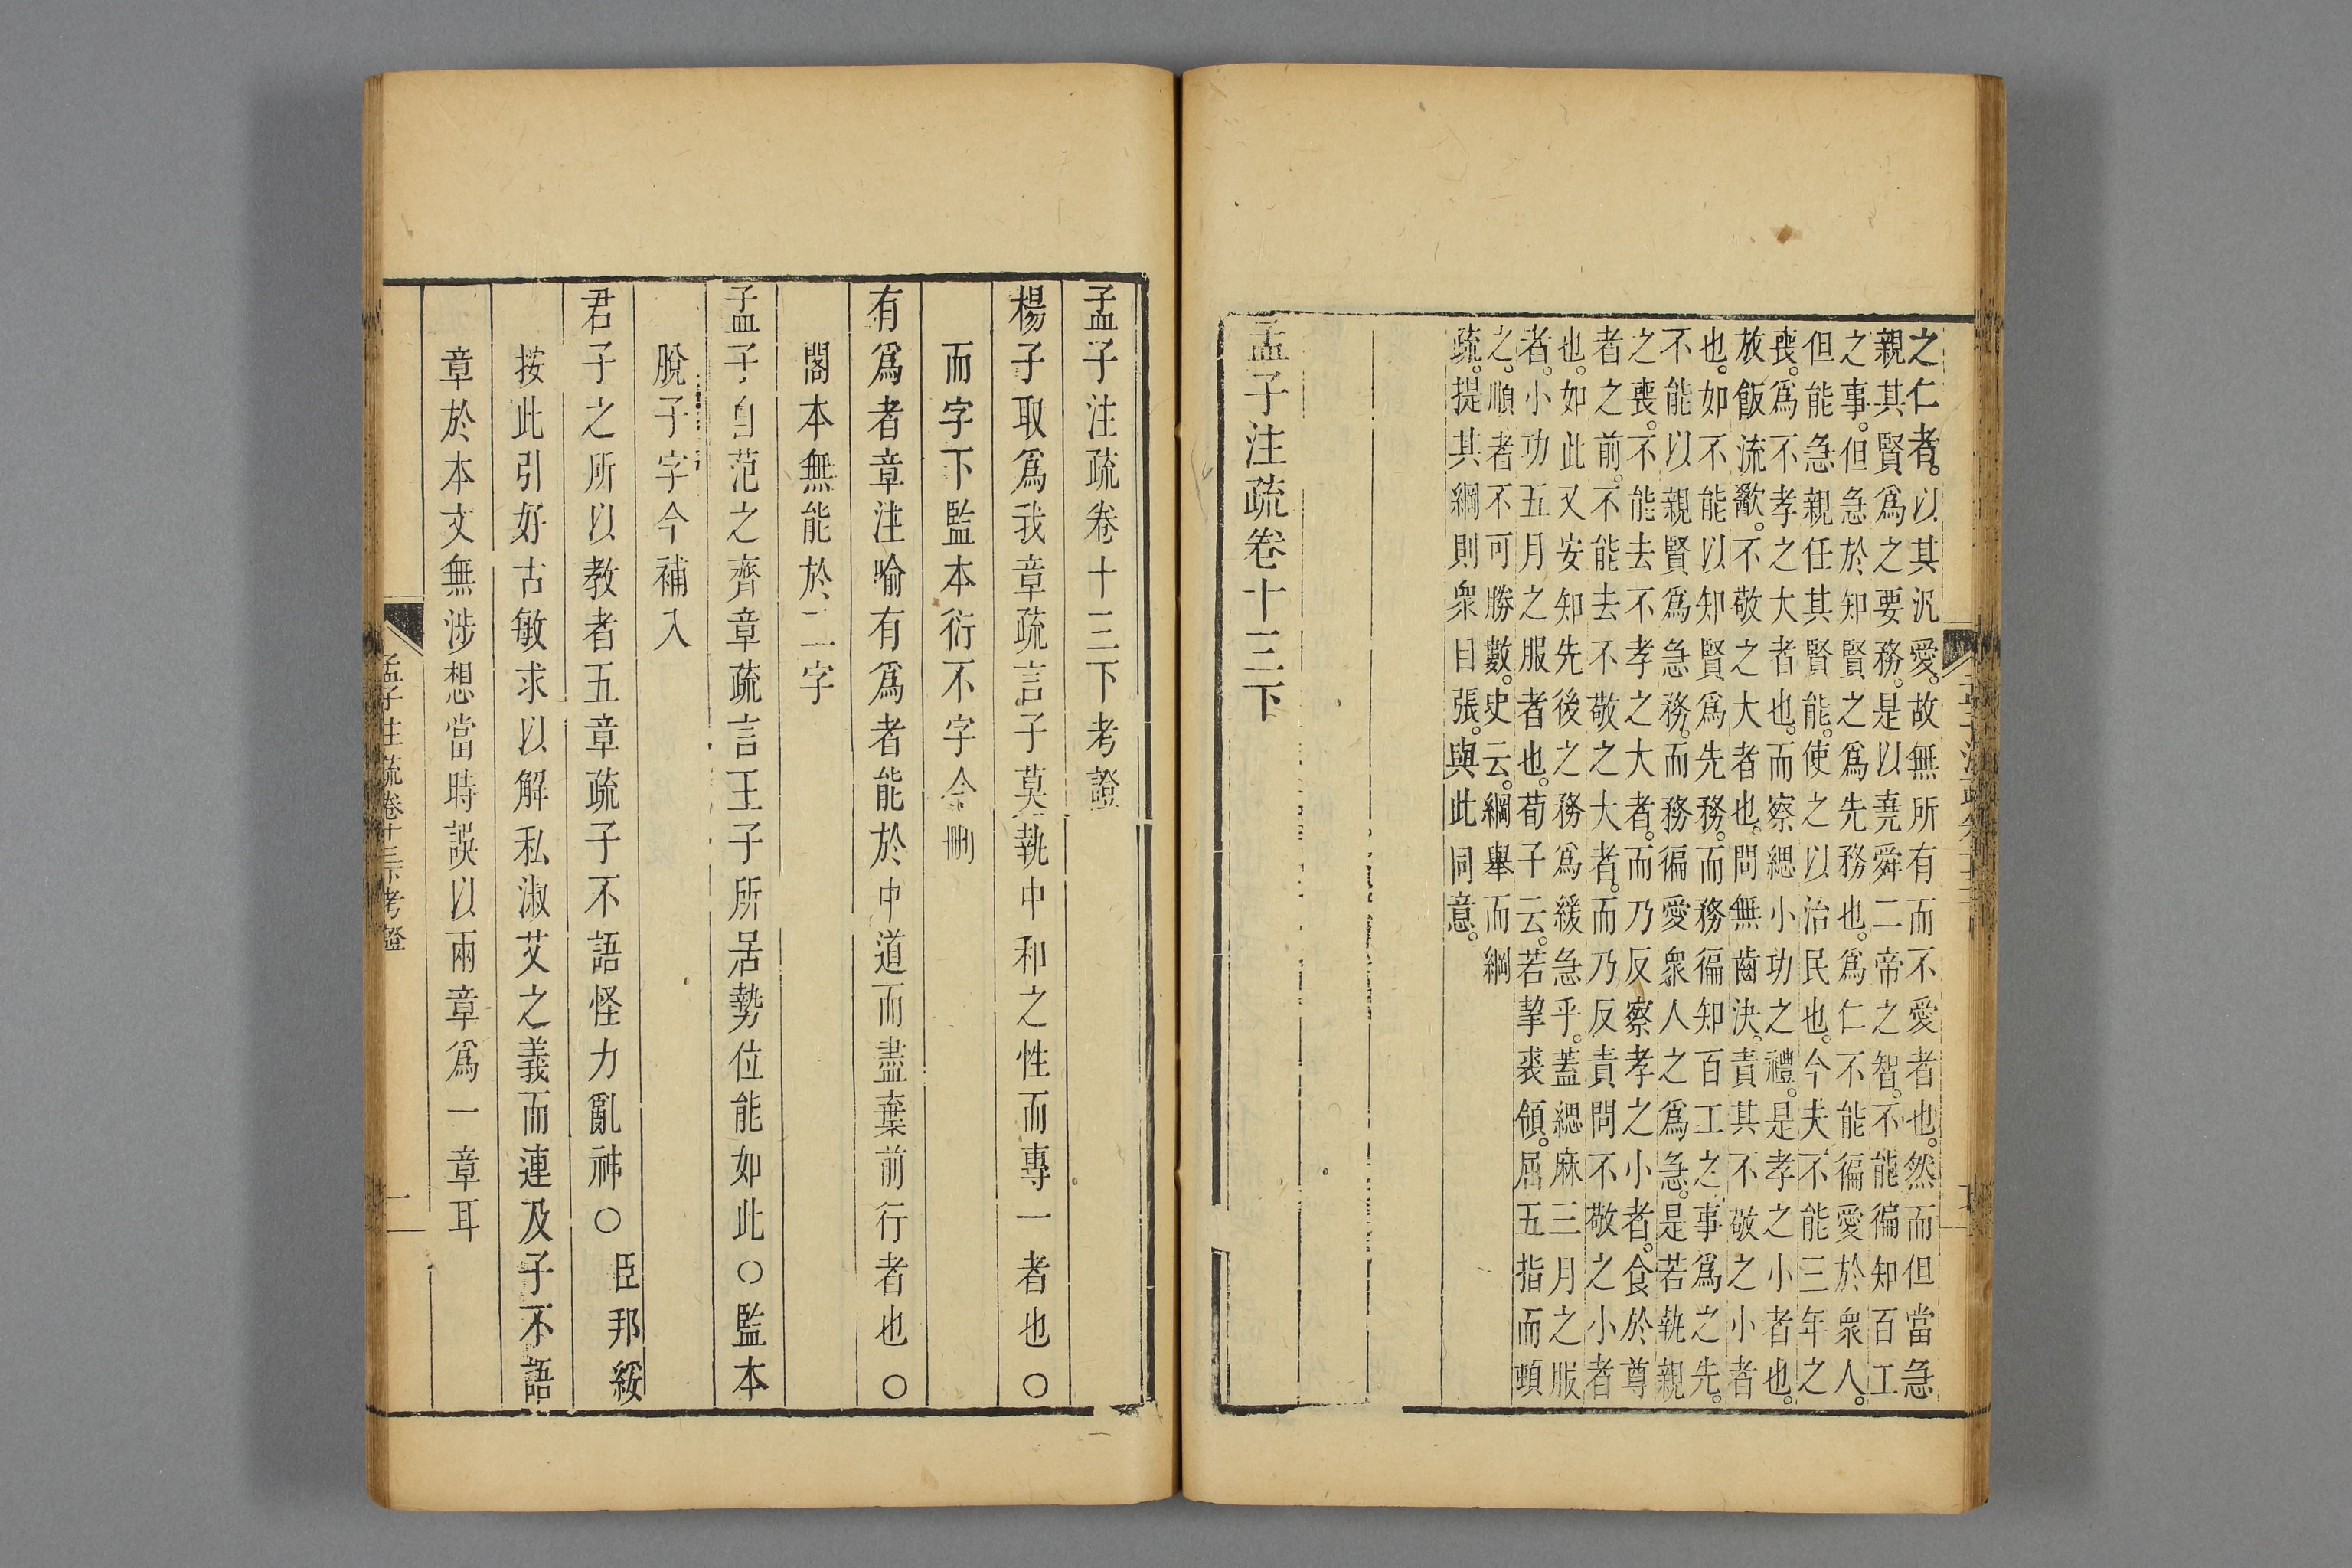 之仁者。以其汎愛。故無所有而不愛者也。然而但當急
親其賢爲之要務。是以堯舜二帝之智。不能徧知百工
之事。但急於知賢之爲先務也。爲仁不能徧愛於衆人。
但能急親任其賢能。使之以治民也。今夫不能三年之
喪。爲不孝之大者也。而察緦小功之禮。是孝之小者也。
放飯流歠。不敬之大者也。問無齒決。責其不敬之小者
也。如不能以知賢爲先務。而務徧知百工之事爲之先。
不能以親賢爲急務。而務徧愛衆人之爲急。是若執親
之喪。不能去不孝之大者。而乃反察孝之小者。食於尊
者之前。不能去不敬之大者。而乃反責問不敬之小者
也。如此又安知先後之務爲緩急乎。蓋緦麻三月之服
者。小功五月之服者也。荀子云。若挈裘領。屈五指而頓
之。順者不可勝數。史云。綱舉而綱
疏。提其綱則衆目張。與此同意。
孟子注疏卷十三下
孟子注疏卷十三下考證
楊子取爲我章疏言子莫執中和之性而專一者也○
而字下監本衍不字今刪
有爲者章注喻有爲者能於中道而盡棄前行者也○
閣本無能於二字
孟子自范之齊章疏言王子所居勢位能如此○監本
脫子字今補入
君子之所以教者五章疏子不語怪力亂神○臣邦綏
按此引好古敏求以解私淑艾之義而連及子不語
章於本文無涉想當時誤以兩章爲一章耳
孟子注疏卷十三下考證
二